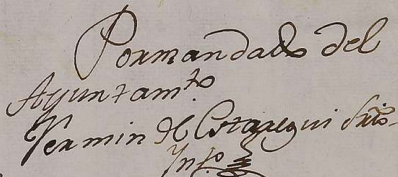 Pormandado del
Ayuntamto
Fermin de Estaregui Srio
Info